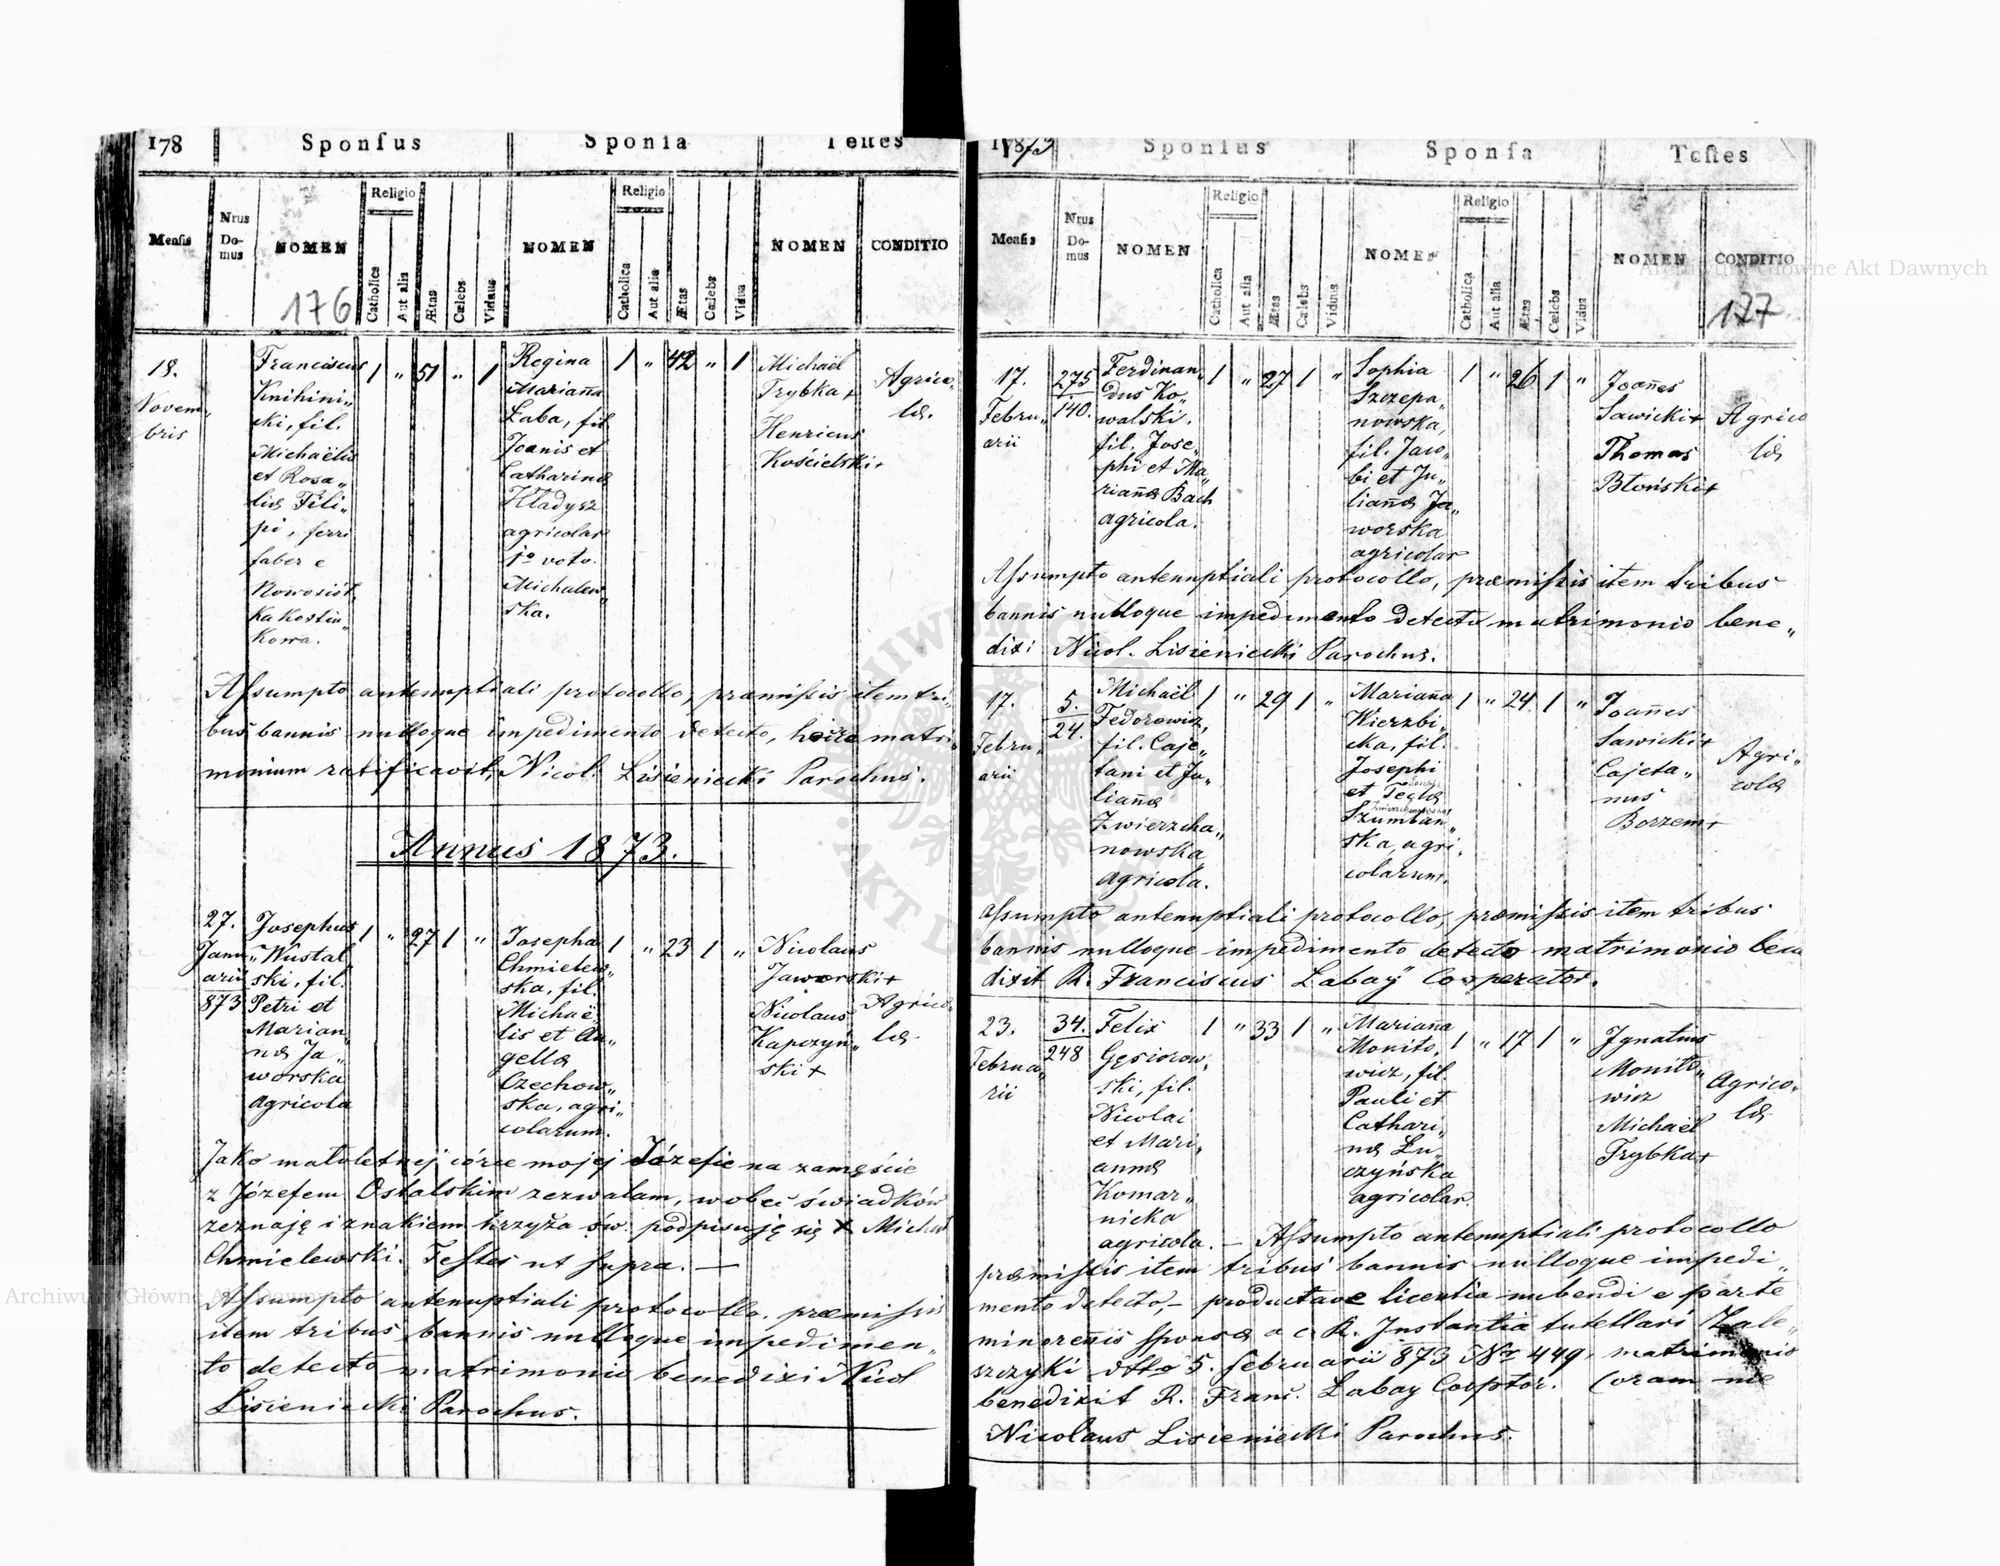 178 Sponsus Sponsa Testes
Mensis
Nrus Do- mus
NOMEN
Religio
Catholica
Aut alia
Ætas
Cœlebs
Viduus
NOMEN
Religio
Catholica
Aut alia
Ætas
Cœlebs
Vidua
NOMEN
CONDITIO
176
18.
Novem„
bris
Franciscus
Knihini„
cki, fil.
Michaëlis
et Rosa„
liæ Fili„
pi, ferri
faber e
Nowosiół„
ka kostiu„
kowa.
1 „ 51 „ 1
Regina
Mariana
Łaba, fil
Joanis et
Catharinæ
Hładysz
agricolar
1o voto
Michalew„
ska.
1 „ 42 „ 1
Michaël
Trybka +
Henricus
Kościelski+
Agrico„
læ.
Assumpto antenuptiali protocollo, præmissis item tri„
bus bannis nulloque impedimento detecto, hocce matri„
monium ratificavit, Nicol. Lisieniecki Parochus.
Annus 1873.
27.
Janu„
arii
873
Josephus
Wustal„
ski, fil.
Petri et
Marian„
næ Ja„
worska
agricola
1 „ 27 1 „
Josepha
Chmielew„
ska, fil.
Michaë„
lis et An„
gellæ
Czechow„
ska, agri„
colarum.
1 „ 23 1 „
Nicolaus
Jaworski+
Nicolaus
Kapczyń„
ski +
Agrico„
læ
Jako małoletnej córce mojej Józefie na zamęście
z Józefem Ostalskim zezwalam, wobec świadków
zeznaję i znakiem krzyża św. podpisuję się X Michał
Chmielewski. Testes ut supra. —
Assumpto antenuptiali protocollo, præmissis
item tribus bannis nulloque impedimen„
to detecto matrimonio benedixi Nicol
Lisieniecki Parochus.
1873 Sponsus Sponsa Testes
Mensis
Nrus Do- mus
NOMEN
Religio
Catholica
Aut alia
Ætas
Cœlebs
Viduus
NOMEN
Religio
Catholica
Aut alia
Ætas
Cœlebs
Vidua
NOMEN
CONDITIO
177
17.
Febru„
arii
275
140.
Ferdinan„
dus Ko„
walski,
fil. Jose„
phi et Ma„
rianæ Bach
agricola.
1 „ 27 1 „
Sophia
Szczepa„
nowska,
fil. Jaco„
bi et Ju„
lianæ Ja„
worska
agricolar
1 „ 26 1 „
Joanes
Sawicki+
Thomas
Błoński+
Agrico
læ
Assumpto antenuptiali protocollo, præmissis item tribus
bannis nulloque impedimento detecto matrimonio bene„
dixi Nicol. Lisieniecki Parochus.
17.
Febru„
arii
5.
24.
Michaël
Fedorowicz,
fil. Caje„
tani et Ju„
lianæ
Zwierzcha„
nowska
agricola.
1 „ 29 1 „
Mariana
Wierzbi„
cka, fil.
Josephi
et Teclæ
Szumlań„
ska, agri„
colarum.
1 „ 24 1 „
Joanes
Sawicki+
Cajeta„
nus
Borzem+
Agri„
colæ
Assumpto antenuptiali protocollo, præmissis item tribus
bannis nulloque impedimento detecto matrimonio bene
dixit R. Franciscus Łabay Cooperator.
23.
Februa„
rii
34.
248
Felix
Gęsiorow„
ski, fil.
Nicolai
et Mari„
annæ
Komar„
nicka
agricola.
1 „ 33 1 „
Mariana
Monito„
wicz, fil.
Pauli et
Cathari„
næ Łu„
czyńska
agricolar.
1 „ 17 1 „
Ignatius
Monito„
wicz
Michaël
Trybka+
Agrico„
læ
— Assumpto antenuptiali protocollo
præmissis item tribus bannis nulloque impedi„
mento detecto, — productave licentia nubendi e parte
minorenis sponsæ a c. R. Instantia tutellari Zale„
szczyki dtto 5. februarii 873 Nr 449, matrimonio
benedixit R. Franc. Łabay Cooptor. Coram me
Nicolaus Lisieniecki Parochus.
Archiwum Główne Akt Dawnych
Archiwum Główne Akt Dawnych